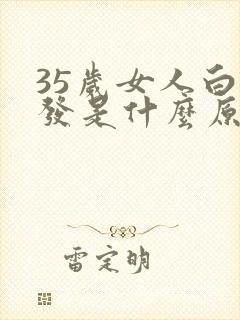 35歲女人白
發是什麼原
雷定明